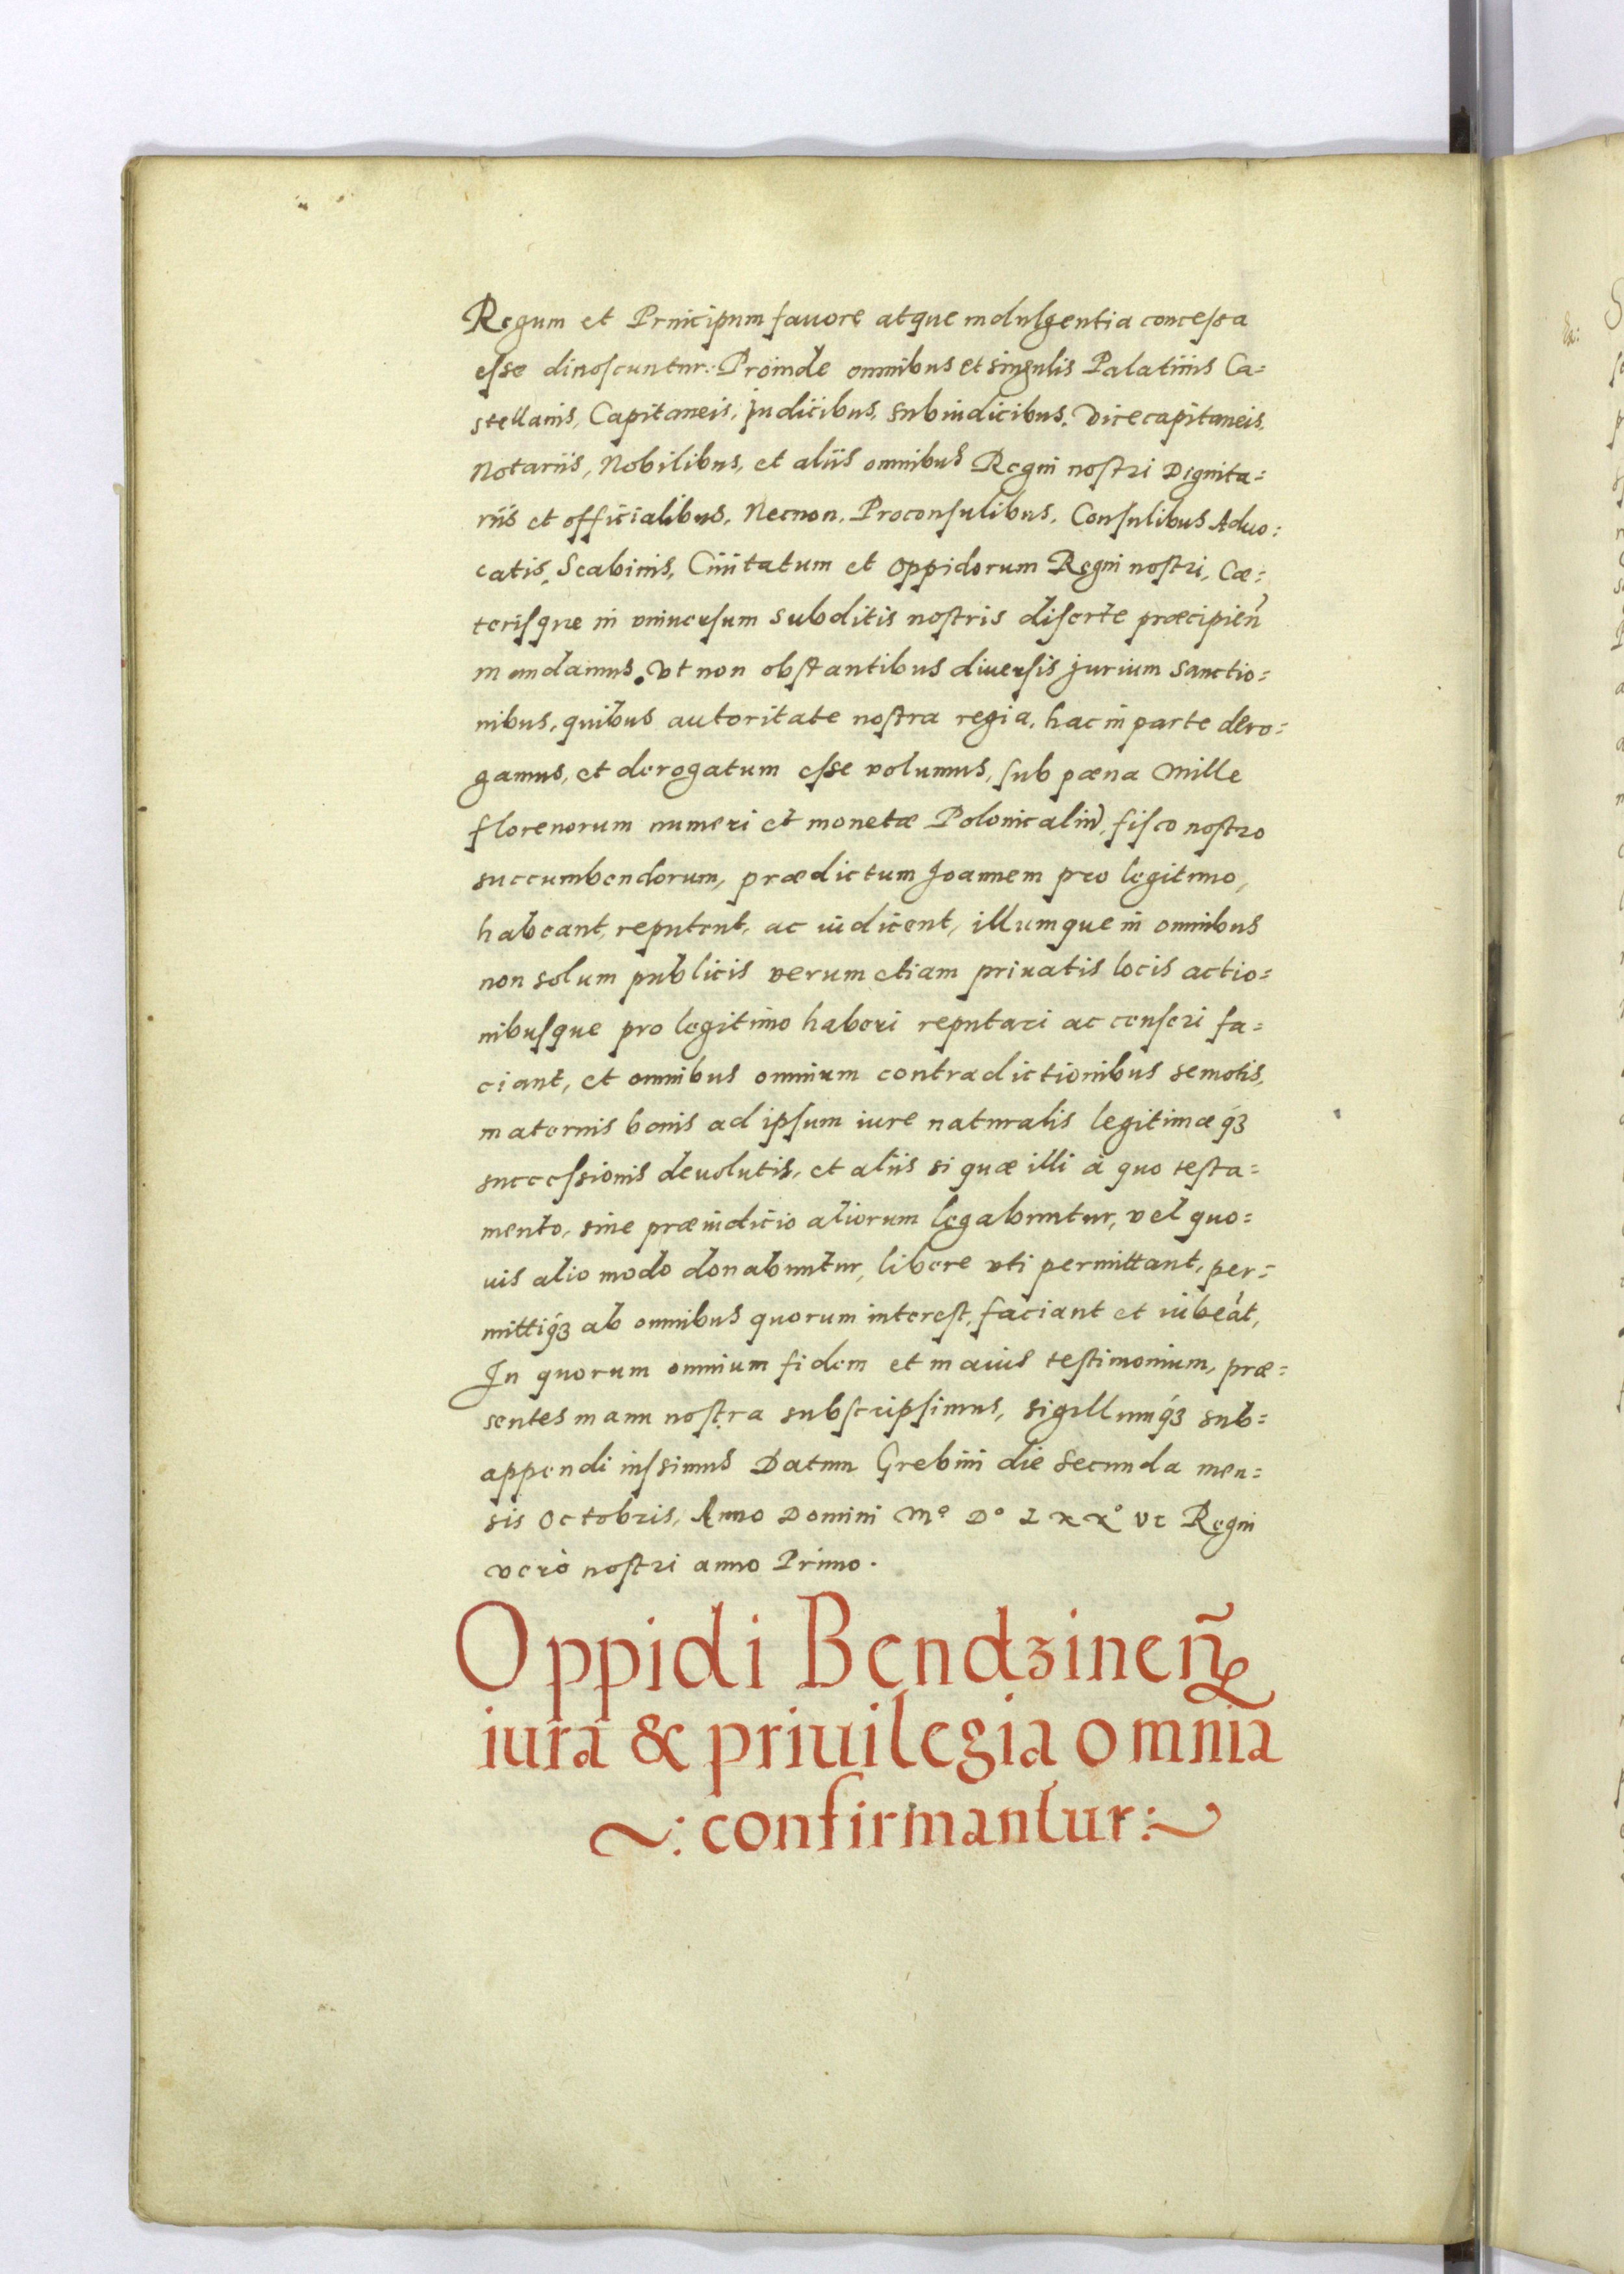 Regum et Principum favore atque indulgentia concessa
esse dinoscuntur. Proinde omnibus et singulis Palatinis Ca=
stellanis, Capitaneis, Judicibus, Subiudicibus, Vicecapitaneis,
Notariis, Nobilibus, et aliis omnibus Regni nostri Dignita=
riis et officialibus, Necnon, Proconsulibus, Consulibus Aduo=
catis, Scabinis, Ciuitatum et Oppidorum Regni nostri, Cæ=
terisque in vniuersum subditis nostris diserte præcipien̄
mandamus. Vt non obstantibus diuersis jurium sanctio=
nibus, quibus autoritate nostra regia, hac in parte dero=
gamus, et derogatum esse volumus, sub pæna Mille
florenorum numeri et monetæ Polonicalium, fisco nostro
succumbendorum, prædictum Joannem pro legitimo,
habeant, reputent, ac iudicent, illumque in omnibus
non solum publicis verum etiam priuatis locis actio=
nibusque pro legitimo haberi reputari ac censeri fa=
ciant, et omnibus omnium contradictionibus semotis,
maternis bonis ad ipsum iure naturalis legitimæqꝫ
successionis deuolutis, et aliis si quæ illi à quo testa=
mento, sine præiudicio aliorum legabuntur, vel quo=
uis alio modo donabuntur, libere vti permittant, per=
mittiqꝫ ab omnibus quorum interest, faciant et iubeāt,
In quorum omnium fidem et maius testimonium, præ=
sentes manu nostra subscripsimus, sigillumqꝫ sub=
appendi iussimus Datum Grebini die secunda men=
sis Octobris, Anno Domini Mº Dº Lxxº vi Regni
verò nostri anno Primo.
Oppidi Bendzinen̄
iura & priuilegia omnia
~: confirmantur :~